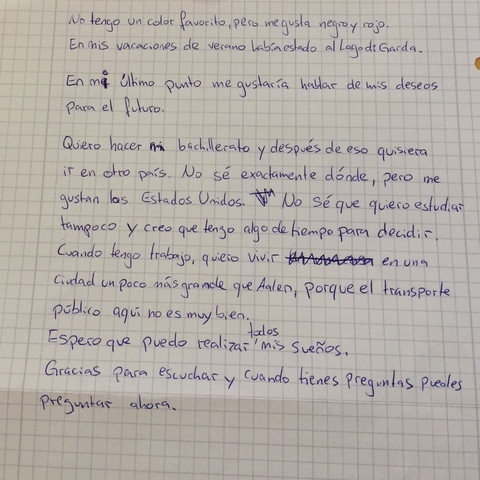 No tengo un color favorito, pero me gusta negro y rojo.
En mis vacaciones de verano había estado al Lago di Garda.
En mi último punto me gustaría hablar de mis deseos
para el futuro.
Quero hacer mi bachillerato y después de eso quisiera
ir en otro país. No sé exactamente dónde, pero me
gustan las Estados Unidos. No sé que quiero estudiar
tampoco y creo que tengo algo de tiempo para decidir.
Cuando tengo trabajo, quiero vivir en una
Ciudad un poco más grande que Aalen, porque el transporte
público aquí no es muy bien.
Espero que puedo realizar todos mis sueños.
Gracias para escuchar y cuando tienes preguntas puedes
preguntar ahora.